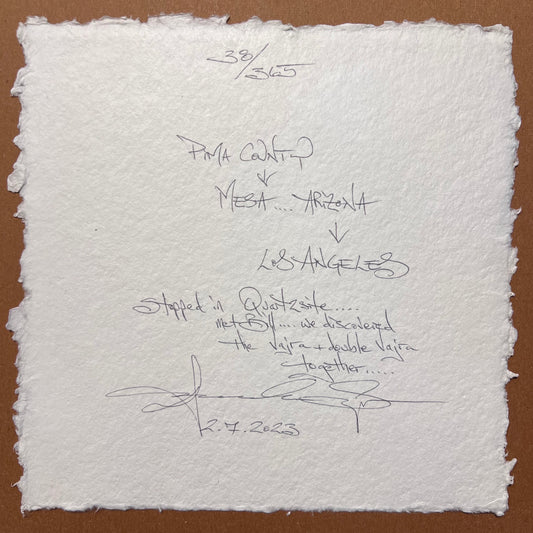 38/365
PIMA COUNTY
↓
MESA.... ARIZONA
↓
LOS ANGELES
Stopped in Quartzsite.....
met Bill.... we discovered
the vajra + double vajra
together.....
2.7.2023